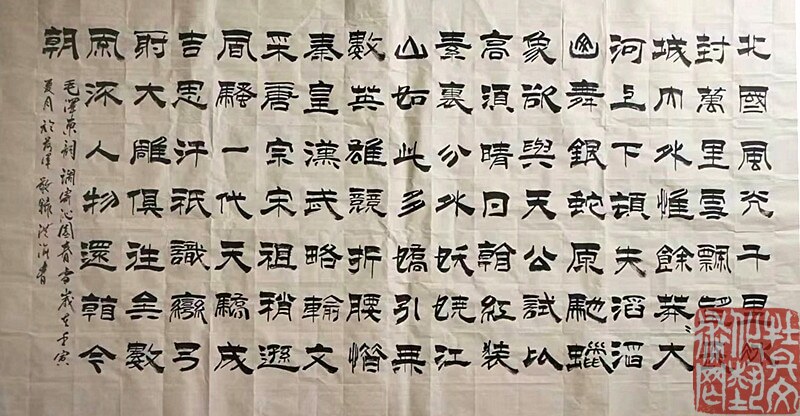 北國風光千里冰
封萬里雪飄望
城內外惟餘莽々大
河上下頓失滔滔
山舞銀蛇原馳蠟
象欲與天公試比
高須晴日看紅裝
素裹分外妖嬈江
山如此多嬌引無
數英雄競折腰惜
秦皇漢武略輸文
采唐宗宋祖稍遜
風騷一代天驕成
吉思汗祇識彎弓
射大雕俱往矣數
風流人物還看今
朝
毛澤東詞調寄沁園春雪歲在壬寅
夏月於書